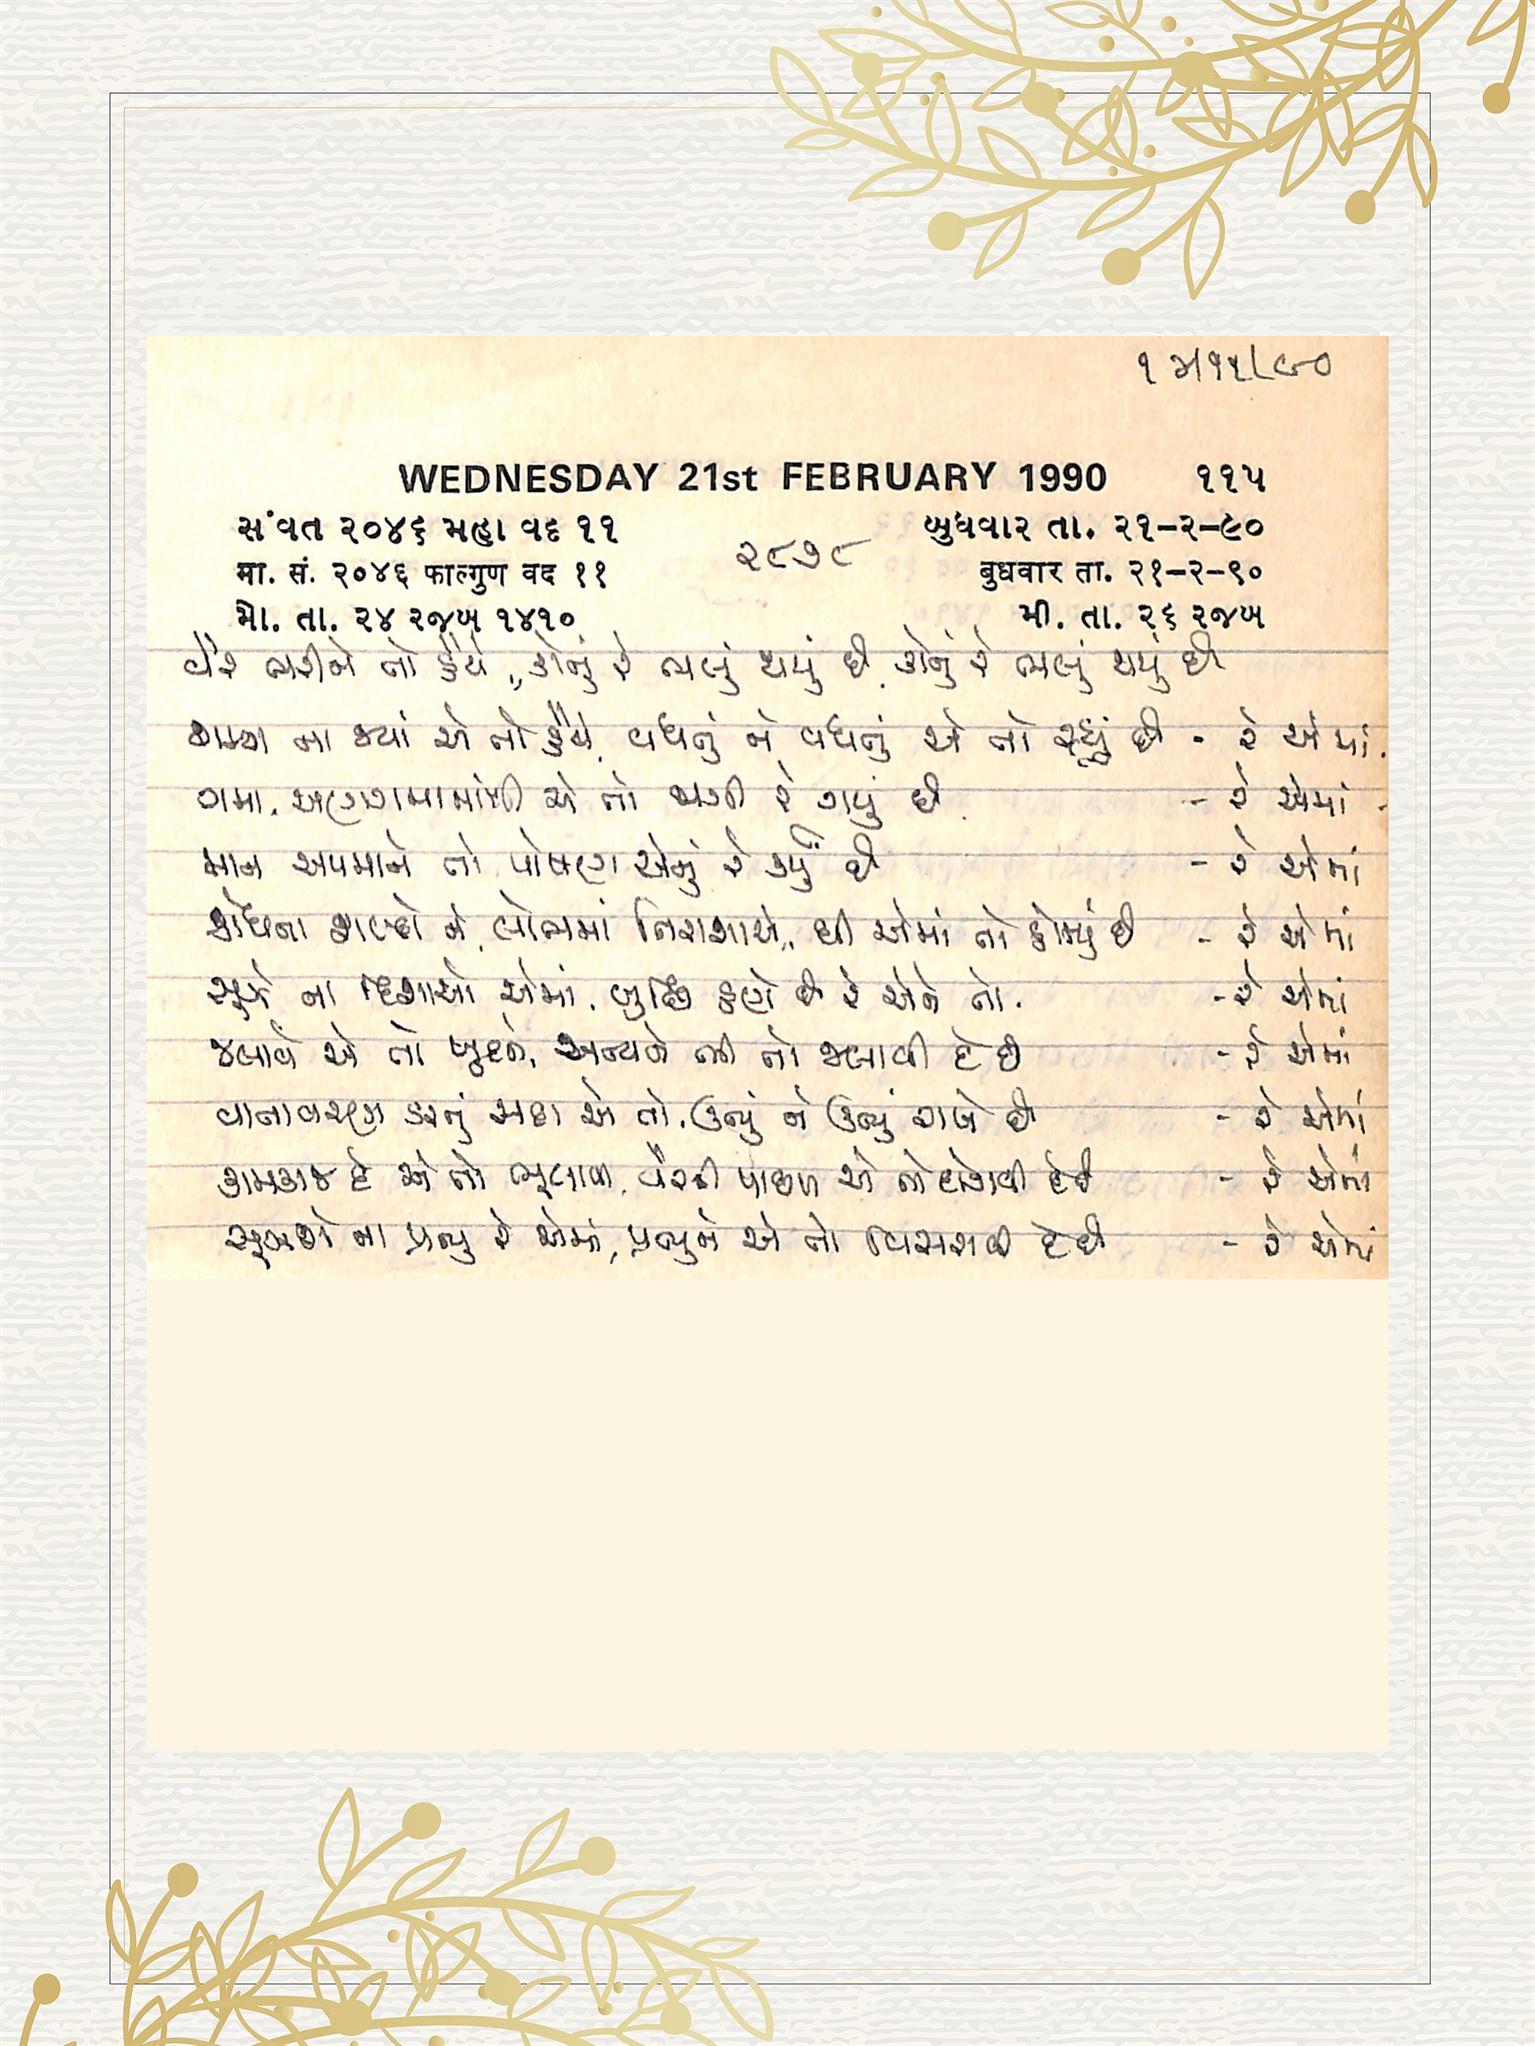 WEDNESDAY 21st FEBRUARY 1990 ૧૧૫
સંવત ૨૦૪૬ મહા વદ ૧૧ બુધવાર તા. ૨૧-૨-૯૦
२८७८
मा. सं. २०४६ फाल्गुण वद ११ बुधवार ता. २१-२-९०
મો. તા. ૨૪ રજબ ૧૪૧૦ મી. તા. ૨૬ રજબ
વૈર ભરીને તો હૈયે, કોનું રે ભલું થયું છે, કોનું રે ભલું થયું છે
ના ક્યાં એ તો હૈયે, વધતું ને વધતું એ તો રહ્યું છે - રે એમાં
ગમા, અણગમામાંથી એ તો થાતી રે ગયું છે - રે એમાં
માન અપમાને તો પોષણ એનું રે કર્યું છે - રે એમાં
ક્રોધના શબ્દો ને, લોભમાં નિરાશાએ, છે એમાં તો ફોગ્યું છે - રે એમાં
સૂઝે ના દિશાઓ એમાં, બુદ્ધિ હણે છે રે એને તો - રે એમાં
જલાવે એ તો ખુદને, અન્યને ભી તો જલાવી દે છે - રે એમાં
વાતાવરણ ડરનું સદા એ તો, ઊભું ને ઊભું રાખે છે - રે એમાં
કામકાજ દે એ તો ભૂલાવી, વૈરની પાછળ એ તો દોડાવી દે છે - રે એમાં
સૂઝશે ના પ્રભુ રે એમાં, પ્રભુને એ તો વિસરાવી દે છે - રે એમાં